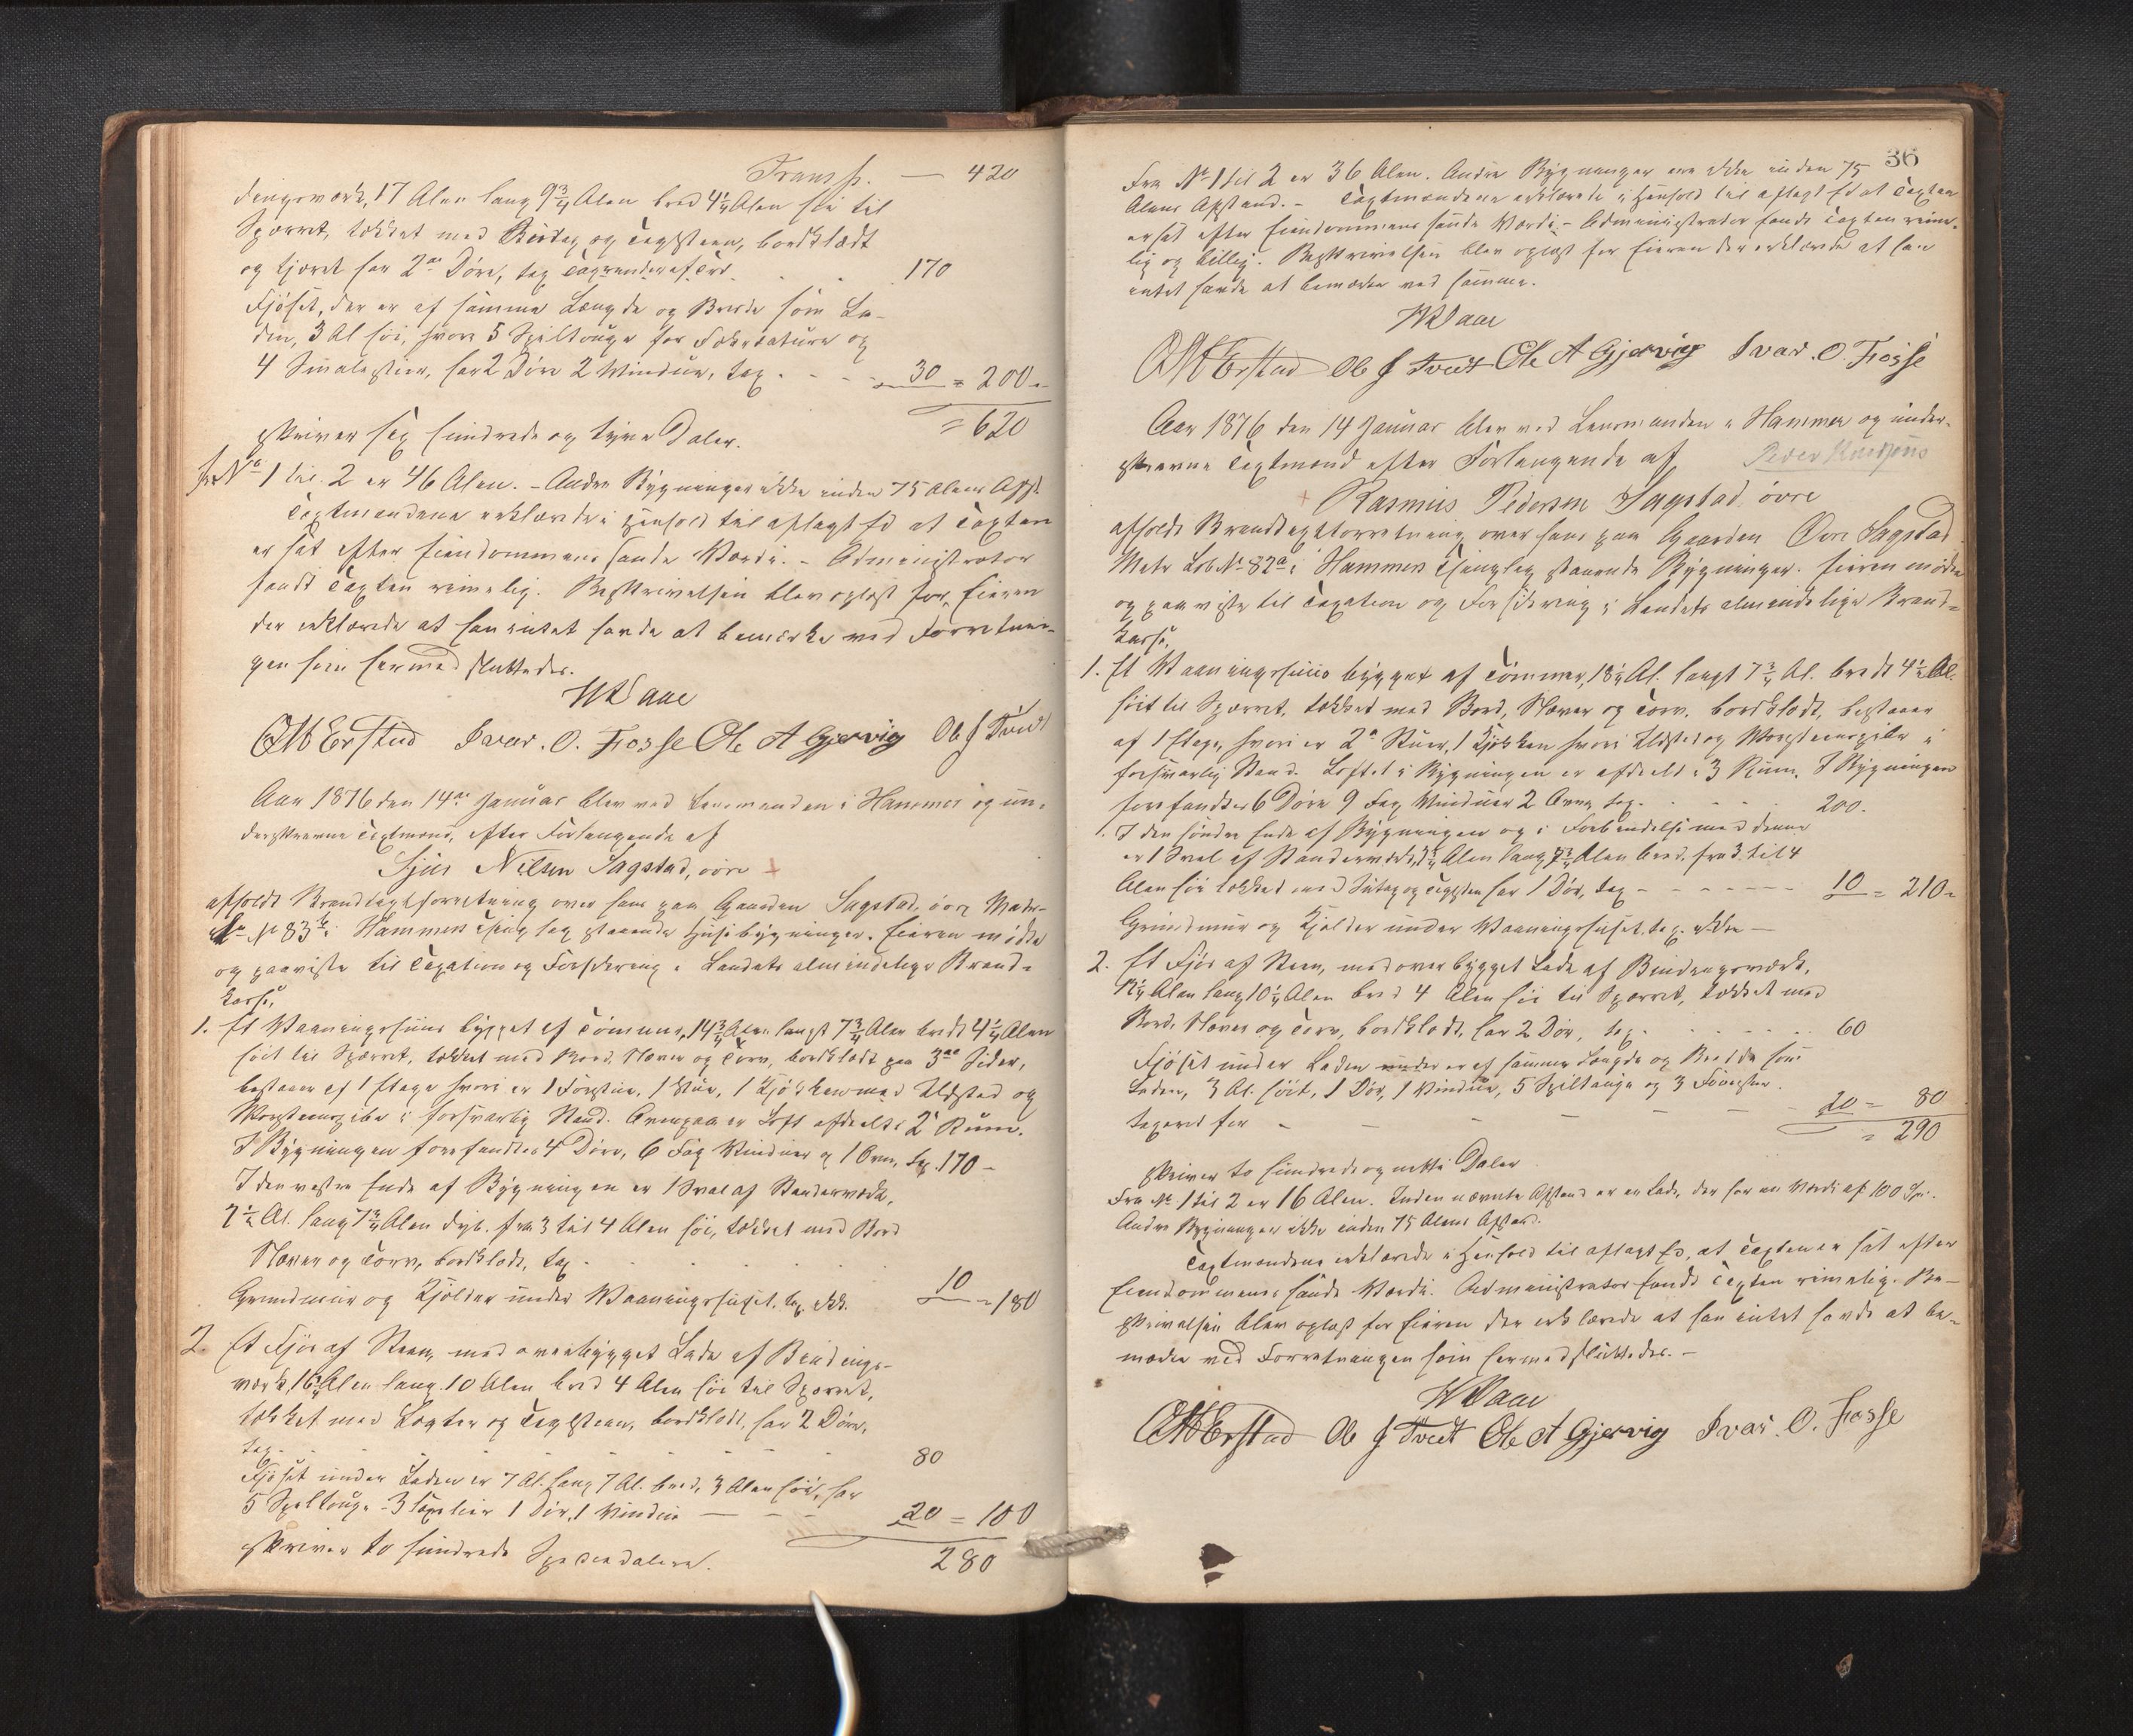 Transp. — 420
dingsværk, 17 Alen lang 9¾ Alen bred 4¼ Alen høi til
Sparret, tækket med Bord og Taglsteen, bordklædt
og tjæret har 2de Døre, tax. Tagrender af Træ . . 170
Fjøset, der er af samme Længde og Brede som La-
den, 3 Al høi, hvori 5 Spiltouge for Fækreature og
4 Smalestier, har 2 Døre 2 Vinduer, tax. - - - 30 = 200 =
= 620
skriver sex hundrede og tyve Daler.
fra No 1 til 2 er 46 Alen. - Andre Bygninger ikke inden 75 Alens Afst.
Taxtmændene erklærede i Henhold til aflagt Ed at Taxten
er sat efter Eiendommens sande Værdi. - Administrator
fandt Taxten rimelig. Beskrivelsen blev oplæst for Eieren
der erklærede at han intet havde at bemærke ved Forretnin-
gen som hermed sluttedes.
W Daae
O M Erstad Ivar. O. Fosse Ole A Gjervig Ole J Tveit
Aar 1876 den 14de Januar blev ved Lensmanden i Hammer og un-
derskrevne Taxtmænd, efter Forlangende af
Sjur Nilsen Sagstad, øvre +
afholdt Brandtaxtforretning over hans paa Gaarden Sagstad, øvre Matr-
No 83b i Hammers Thinglag staaende Huusebygninger. Eieren mødte
og paaviste til Taxation og Forsikring i Landets almindelige Brand-
kasse,
1. Et Vaaningshuus bygget af Tømmer, 14¾ Alen langt 7¾ Alen bredt 4¼ Alen
høit til Sparret, tækket med Bord, Næver og Torv, bordklædt paa 3de Sider,
bestaaer af 1 Etage hvori er 1 Forstue, 1 Stue, 1 Kjøkken med Ildsted og
Murstenspibe i forsvarlig Stand. Ovenpaa er Loft afdeelt i 2 Rum.
I Bygningen forefandtes 4 Døre, 6 Fag Vinduer og 1 Ovn, tax. 170 -
I den vestre Ende af Bygningen er 1 Sval af Standerværk,
2½ Al. lang 7¾ Alen dyb. fra 3 til 4 Alen høi, tækket med Bord
Næver og Torv, bordklædt, tax . . . . .
Grundmuur og Kjelder under Vaaningshuset, tax. ikke. 10 = 180
2. Et Fjøs af Steen, med overbygget Lade af Bindings-
værk, 16¾ Alen lang. 10 Alen bred 4 Alen høi til Sparret,
tækket med Lægter og Taglsteen, bordklædt, har 2 Døre,
tax. - - - - - 80
Fjøset under Laden er 7 Al. lang 7 Al. bred, 3 Alen høi, har
5 Spiltouge - 3 1 Dør, 1 Vindue — — - 20 = 100
skriver to hundrede Speciedalere. 280
36
Fra No 1 til 2 er 36 Alen. Andre Bygninger ere ikke inden 75
Alens Afstand. - Taxtmændene erklærede i Henhold til aflagt Ed at Taxten
er sat efter Eiendommens sande Værdi. - Administrator fandt Taxten rime-
lig og billig. Beskrivelsen blev oplæst for Eieren der erklærede at han
intet havde at bemærke ved samme.
W Daae
O M Erstad Ole J Tveit Ole A Gjervig Ivar. O. Fosse
Aar 1876 den 14 Januar blev ved Lensmanden i Hammer og under-
skrevne Taxtmænd efter Forlangende af Peder
+ Rasmus Pedersen Sagstad, øvre
afholdt Brandtaxtforretning over hans paa Gaarden Øvre Sagstad
Matr Løb No 82a i Hammers Thinglag staaende Bygninger. Eieren mødte
og paaviste til Taxation og Forsikring i Landets almindelige Brand-
kasse,
1. Et Vaaningshuus bygget af Tømmer, 18½ Al. langt 7¾ Al. bredt 4½ Al.
høit til Sparret, tækket med Bord, Næver og Torv, bordklædt, bestaaer
af 1 Etage, hvori er 2de Stuer, 1 Kjøkken hvori Ildsted og Murstenspibe i
forsvarlig Stand. Loftet i Bygningen er afdeelt i 3 Rum. I Bygningen
forefandtes 6 Døre 9 Fag Vinduer 2 Ovne, tax. . . . . 200.
I den søndre Ende af Bygningen og i Forbindelse med denne
er 1 Sval af Standerværk, Alen lang, 7¾ Alen bred, fra 3 til 4
Alen høi tækket med og Taglsten har 1 Dør, tax - - - - - - 10 = 210 =
Grundmuur og Kjelder under Vaaningshuset, tax. ikke —
2. Et Fjøs af Steen, med overbygget Lade af Bindingsværk,
12¼ Alen lang 10¼ Alen bred 4 Alen høi til Sparret, tækket med
Bord, Næver og Torv, bordklædt, har 2 Dør, tax. . . . . 60
Fjøset under Laden er af samme Længde og Bredde som
Laden, 3 Al. høit, 1 Dør, 1 Vindue, 5 Spiltauge og 3
taxeret for - — — — — 20 = 80
= 290
skriver to hundrede og nitti Daler
Fra No 1 til 2 er 16 Alen. Inden nævnte Afstand er en Lade, der har en Værdi af 100 Spd.
Andre Bygninger ikke inden 75 Alens Afstand.
Taxtmændene erklærede i Henhold til aflagt Ed, at Taxten er sat efter
Eiendommens sande Værdi. Administrator fandt Taxten rimelig. Be-
skrivelsen blev oplæst for Eieren der erklærede at han intet havde at be-
mærke ved Forretningen som hermed sluttedes. -
W Daae
O M Erstad Ole J Tveit Ole A Gjervig Ivar. O. Fosse